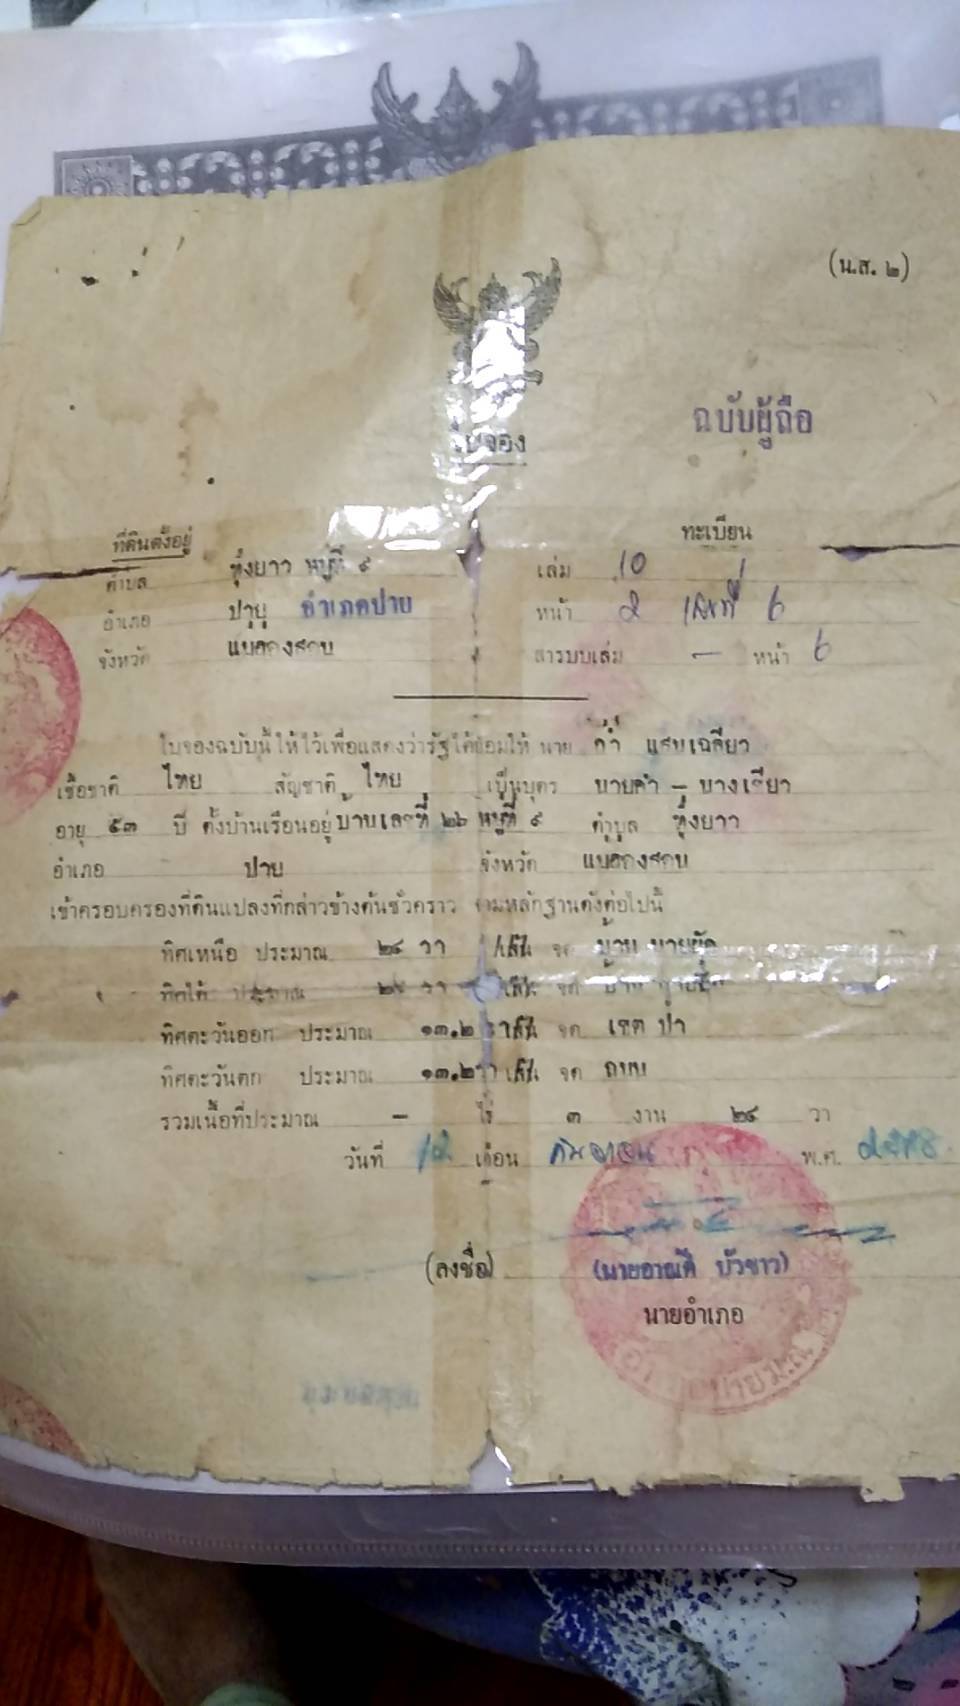 (น.ส. ๒)
ใบจอง
ฉบับผู้ถือ
ที่ดินตั้งอยู่
ทะเบียน
ตำบล ทุ่งยาว หมู่ที่ ๙ เล่ม 10
อำเภอ ปาย อำเภอปาย หน้า 2 เลขที่ 6
จังหวัด แม่ฮ่องสอน สารบบเล่ม - หน้า 6
ใบจองฉบับนี้ให้ไว้เพื่อแสดงว่ารัฐได้ยอมให้ นาย คำ แสนเฉลียว
เชื้อชาติ ไทย สัญชาติ ไทย เป็นบุตร นายคำ -
อายุ ๕๓ ปี ตั้งบ้านเรือนอยู่ บ้านเลขที่ ๒๖ หมู่ที่ ๙ ตำบล ทุ่งยาว
อำเภอ ปาย จังหวัด แม่ฮ่องสอน
เข้าครอบครองที่ดินแปลงที่กล่าวข้างต้นชั่วคราว ตามหลักฐานดังต่อไปนี้
ทิศเหนือ ประมาณ ๒๔ วา เส้น จด บ้าน
ทิศใต้ ประมาณ ๒๔ วา เส้น จด บ้าน
ทิศตะวันออก ประมาณ ๑๓.๒ วา เส้น จด เขต ป่า
ทิศตะวันตก ประมาณ ๑๓.๒ วา เส้น จด ถนน
รวมเนื้อที่ประมาณ - ไร่ ๓ งาน ๒๔ วา
วันที่ 12 เดือน กันยายน พ.ศ.
(ลงชื่อ)
บัวขาว)
นายอำเภอ